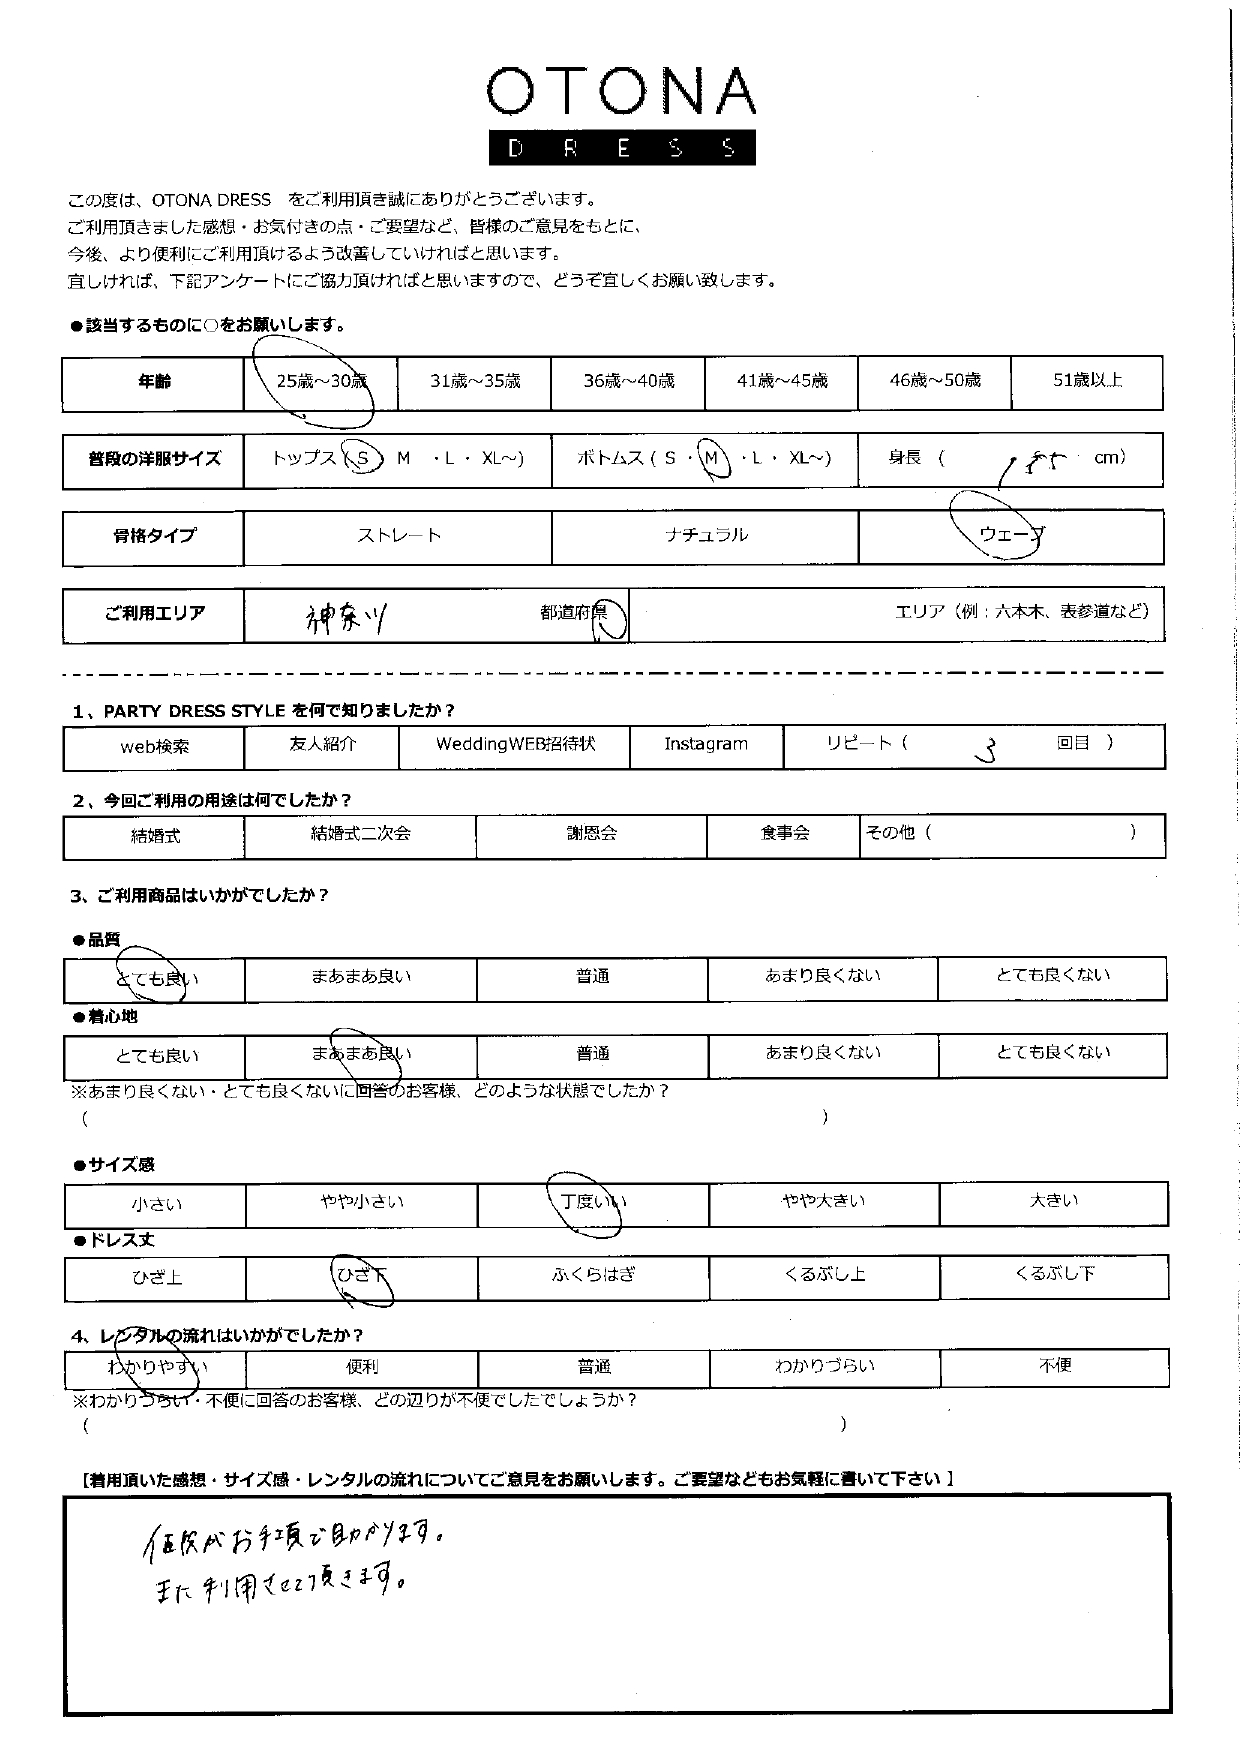 OTONA
DRESS
この度は、OTONA DRESS をご利用頂き誠にありがとうございます。
ご利用頂きました感想・お気付きの点・ご要望など、皆様のご意見をもとに、
今後、より便利にご利用頂けるよう改善していければと思います。
宜しければ、下記アンケートにご協力頂ければと思いますので、どうぞ宜しくお願い致します。
●該当するものに○をお願いします。
年齢 25歳～30歳 31歳～35歳 36歳～40歳 41歳～45歳 46歳～50歳 51歳以上
普段の洋服サイズ トップス (S) M ・L・ XL～) ボトムス ( S ・ M ・L・ XL～) 身長 ( cm)
骨格タイプ ストレート ナチュラル ウェーブ
ご利用エリア 神奈川 都道府県 エリア（例：六本木、表参道など）
1、PARTY DRESS STYLE を何で知りましたか？
web検索 友人紹介 WeddingWEB招待状 Instagram リピート ( 3 回目 )
2、今回ご利用の用途は何でしたか？
結婚式 結婚式二次会 謝恩会 食事会 その他 ( )
3、ご利用商品はいかがでしたか？
●品質
とても良い まあまあ良い 普通 あまり良くない とても良くない
●着心地
とても良い まあまあ良い 普通 あまり良くない とても良くない
※あまり良くない・とても良くないに回答のお客様、どのような状態でしたか？
( )
●サイズ感
小さい やや小さい 丁度いい やや大きい 大きい
●ドレス丈
ひざ上 ひざ下 ふくらはぎ くるぶし上 くるぶし下
4、レンタルの流れはいかがでしたか？
わかりやすい 便利 普通 わかりづらい 不便
※わかりづらい・不便に回答のお客様、どの辺りが不便でしたでしょうか？
( )
【着用頂いた感想・サイズ感・レンタルの流れについてご意見をお願いします。ご要望などもお気軽に書いて下さい】
値段がお手頃で助かります。
また利用させて頂きます。